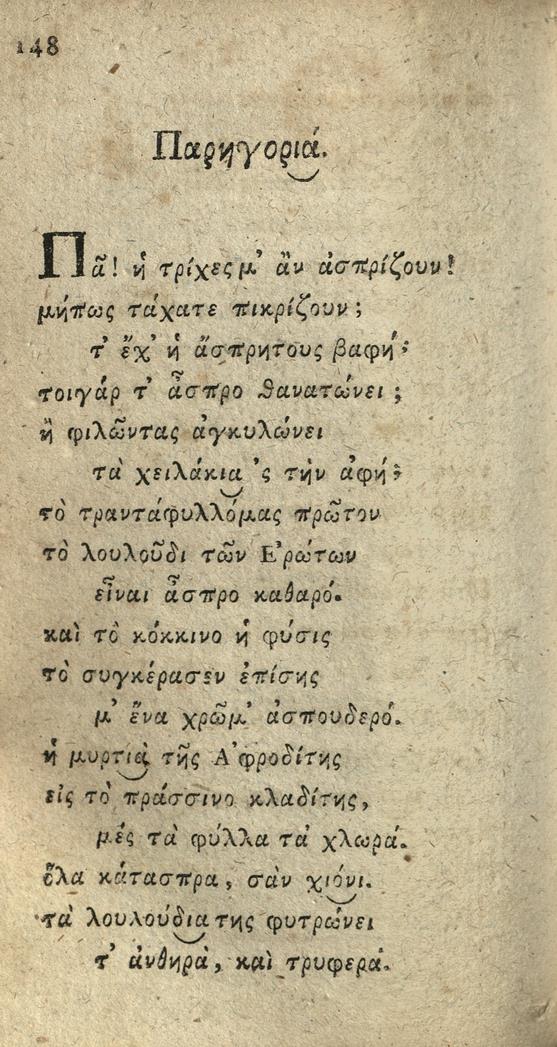 148
Παρηγοριά.
Πᾶ! ἡ τρίχες μ' ἂν ἀσπρίζουν!
μήπως τάχατε πικρίζουν;
τ' ἔχ' ἡ ἄσπρητους βαφή;
τοιγάρ τ' ἄσπρο θανατώνει;
ἢ φιλῶντας ἀγκυλώνει
τὰ χειλάκια 'ς τὴν ἀφή;
τὸ τραντάφυλλόμας πρῶτον
τὸ λουλοῦδι τῶν Ε'ρώτων
εἶναι ἄσπρο καθαρό.
καὶ τὸ κόκκινο ἡ φύσις
τὸ συγκέρασεν ἐπίσης
μ' ἕνα χρῶμ' ἀσπουδερό.
ἡ μυρτιὰ τῆς Α'φροδίτης
εἰς τὸ πράσσινο κλαδίτης,
μές τὰ φύλλα τὰ χλωρά.
ὅλα κάτασπρα, σὰν χιόνι.
τὰ λουλούδια της φυτρώνει
τ' ἀνθηρὰ, καὶ τρυφερά.